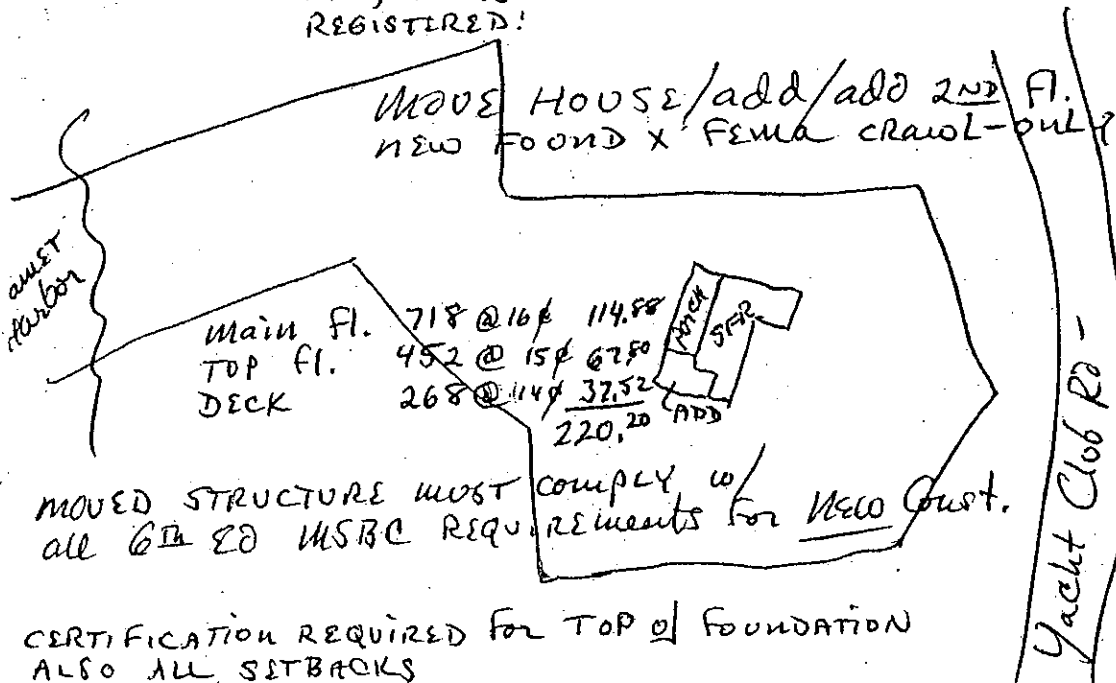 REGISTIRED!
MOVE HOUSE/add/add 2ND Fl.
NEW FOUND X FEMA CRAWL-ONLY
AMET
HARBOR
PORCH
SFR
main fl. 718 @ 16¢ 114.88
TOP fl. 452 @ 15¢ 67.80
DECK 268 @ 14¢ 37.52
ADD
220.20
MOVED STRUCTURE MUST COMPLY w/
all 6th ED MSBC REQUIREMENTS for New Const.
Yacht Club Rd-
CERTIFICATION REQUIRED for TOP of FOUNDATION
ALSO ALL SETBACKS